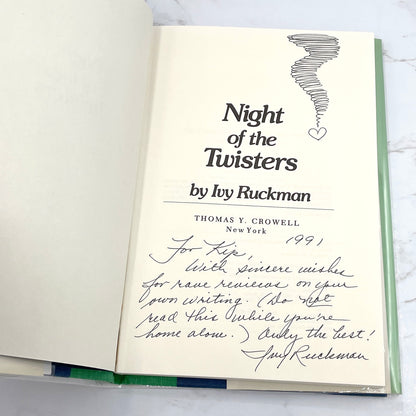 Night
of the
Twisters
by Ivy Ruckman
THOMAS Y. CROWELL
New York
1991
For Kip,
With sincere wishes
for rave reviews on your
own writing. (Do not
read this while you're
home alone.) Only the best!
Ivy Ruckman